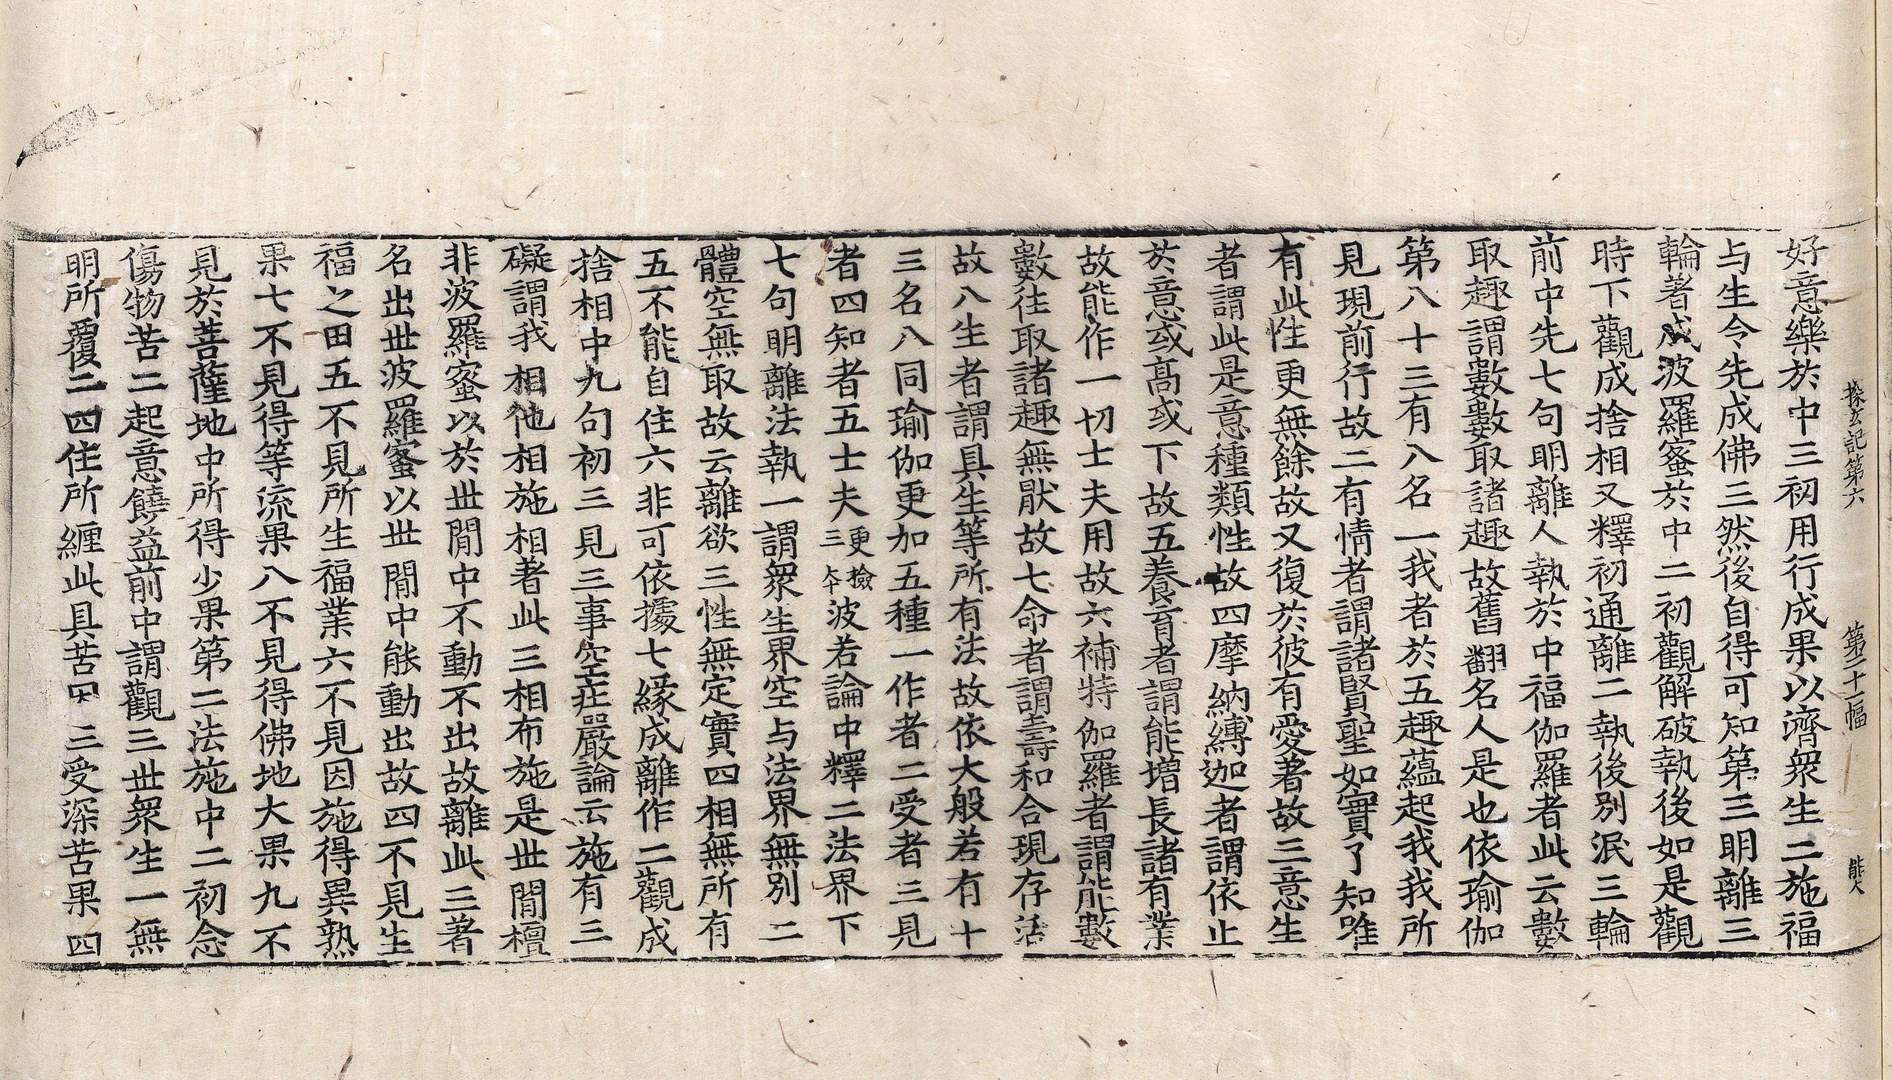 探玄記第六　第二十一幅　能大
好意樂於中三初用行成果以濟眾生二施福
与生令先成佛三然後自得可知第三明離三
輪著成波羅蜜於中二初觀解破執後如是觀
時下觀成捨相又釋初通離二執後別泯三輪
前中先七句明離人執於中福伽羅者此云數
取趣謂數數取諸趣故舊翻名人是也依瑜伽
第八十三有八名一我者於五趣蘊起我我所
見現前行故二有情者謂諸賢聖如實了知唯
有此性更無餘故又復於彼有愛著故三意生
者謂此是意種類性故四摩納縛迦者謂依止
於意或高或下故五養育者謂能增長諸有業
故能作一切士夫用故六補特伽羅者謂能數
數往取諸趣無厭故七命者謂壽和合現存活
故八生者謂具生等所有法故依大般若有十
三名八同瑜伽更加五種一作者二受者三見
者四知者五士夫更檢三本波若論中釋二法界下
七句明離法執一謂眾生界空与法界無別二
體空無取故云離欲三性無定實四相無所有
五不能自住六非可依攗七緣成離作二觀成
捨相中九句初三見三事空莊嚴論云施有三
礙謂我相他相施相著此三相布施是世間檀
非波羅蜜以於世間中不動不出故離此三著
名出世波羅蜜以世間中能動出故四不見生
福之田五不見所生福業六不見因施得異熟
果七不見得等流果八不見得佛地大果九不
見於菩薩地中所得少果第二法施中二初念
傷物苦二起意饒益前中謂觀三世眾生一無
明所覆二四住所纏此具苦因三受深苦果四